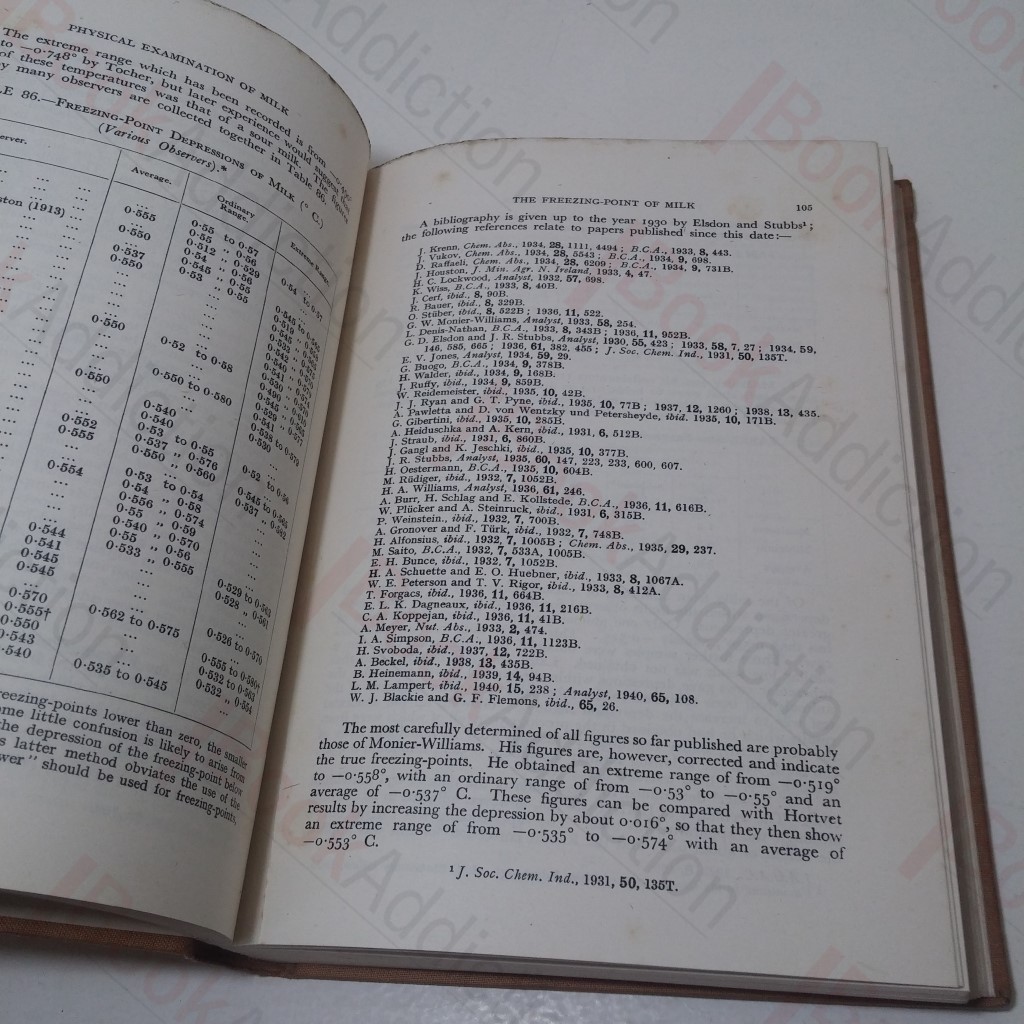 PHYSICAL EXAMINATION OF MILK
The extreme range which has been recorded is from
to —0·748° by Tocher, but later experience would suggest
of these temperatures was that of a sour milk. The figures
by many observers are collected together in Table 86.
LE 86.—FREEZING-POINT DEPRESSIONS OF MILK (° C.)
(Various Observers).*
erver. Average. Ordinary Range. Extreme Range.
ston (1913)
0·555
0·550
0·537
0·550
0·55 to 0·57
0·55 „ 0·56
0·512 „ 0·529
0·54 „ 0·56
0·545 „ 0·55
0·53 „ 0·55
0·550
0·52 to 0·58
0·550
0·550 to 0·580
0·540
0·540
0·552
0·53 to 0·55
0·555
0·537 „ 0·576
0·550 „ 0·560
0·554
0·53 to 0·54
0·54 „ 0·58
0·556 „ 0·574
0·55 „ 0·59
0·544
0·540 „ 0·570
0·541
0·55 „ 0·56
0·545
0·533 „ 0·555
0·545
0·529 to 0·563
0·528 „ 0·561
0·570
0·555†
0·562 to 0·575
0·550
0·526 to 0·570
0·543
0·540
0·535 to 0·545
0·532 to 0·563
0·532 „ 0·554
reezing-points lower than zero, the smaller
ome little confusion is likely to arise from
the depression of the freezing-point below
s latter method obviates the use of the
wer" should be used for freezing-points,
THE FREEZING-POINT OF MILK 105
A bibliography is given up to the year 1930 by Elsdon and Stubbs¹;
the following references relate to papers published since this date:—
J. Krenn, Chem. Abs., 1934, 28, 1111, 4494; B.C.A., 1933, 8, 443.
T. Vukov, Chem. Abs., 1934, 28, 5543; B.C.A., 1934, 9, 698.
D. Raffaeli, Chem. Abs., 1934, 28, 6209; B.C.A., 1934, 9, 731B.
J. Houston, J. Min. Agr. N. Ireland, 1933, 4, 47.
H. C. Lockwood, Analyst, 1932, 57, 698.
K. Wiss, B.C.A., 1933, 8, 40B.
J. Cerf, ibid., 8, 90B.
R. Bauer, ibid., 8, 329B.
O. Stüber, ibid., 8, 522B; 1936, 11, 522.
G. W. Monier-Williams, Analyst, 1933, 58, 254.
L. Denis-Nathan, B.C.A., 1933, 8, 343B; 1936, 11, 952B.
G. D. Elsdon and J. R. Stubbs, Analyst, 1930, 55, 423; 1933, 58, 7, 27; 1934, 59,
146, 585, 665; 1936, 61, 382, 455; J. Soc. Chem. Ind., 1931, 50, 135T.
E. V. Jones, Analyst, 1934, 59, 29.
G. Buogo, B.C.A., 1934, 9, 378B.
H. Walder, ibid., 1934, 9, 168B.
J. Ruffy, ibid., 1934, 9, 859B.
W. Reidemeister, ibid., 1935, 10, 42B.
J. J. Ryan and G. T. Pyne, ibid., 1935, 10, 77B; 1937, 12, 1260; 1938, 13, 435.
A. Pawletta and D. von Wentzky und Petersheyde, ibid. 1935, 10, 171B.
G. Gibertini, ibid., 1935, 10, 285B.
A. Heiduschka and A. Kern, ibid., 1931, 6, 512B.
J. Straub, ibid., 1931, 6, 860B.
J. Gangl and K. Jeschki, ibid., 1935, 10, 377B.
J. R. Stubbs, Analyst, 1935, 60, 147, 223, 233, 600, 607.
H. Oestermann, B.C.A., 1935, 10, 604B.
M. Rüdiger, ibid., 1932, 7, 1052B.
H. A. Williams, Analyst, 1936, 61, 246.
A. Burr, H. Schlag and E. Kollstede, B.C.A., 1936, 11, 616B.
W. Plücker and A. Steinruck, ibid., 1931, 6, 315B.
P. Weinstein., ibid., 1932, 7, 700B.
A. Gronover and F. Türk, ibid., 1932, 7, 748B.
H. Alfonsius, ibid., 1932, 7, 1005B; Chem. Abs., 1935, 29, 237.
M. Saito, B.C.A., 1932, 7, 533A, 1005B.
E. H. Bunce, ibid., 1932, 7, 1052B.
H. A. Schuette and E. O. Huebner, ibid., 1933, 8, 1067A.
W. E. Peterson and T. V. Rigor, ibid., 1933, 8, 412A.
T. Forgacs, ibid., 1936, 11, 664B.
E. L. K. Dagneaux, ibid., 1936, 11, 216B.
C. A. Koppejan, ibid., 1936, 11, 41B.
A. Meyer, Nut. Abs., 1933, 2, 474.
I. A. Simpson, B.C.A., 1936, 11, 1123B.
H. Svoboda, ibid., 1937, 12, 722B.
A. Beckel, ibid., 1938, 13, 435B.
B. Heinemann, ibid., 1939, 14, 94B.
L. M. Lampert, ibid., 1940, 15, 238; Analyst, 1940, 65, 108.
W. J. Blackie and G. F. Flemons, ibid., 65, 26.
The most carefully determined of all figures so far published are probably
those of Monier-Williams. His figures are, however, corrected and indicate
the true freezing-points. He obtained an extreme range of from —0·519°
to —0·558°, with an ordinary range of from —0·53° to —0·55° and an
average of —0·537° C. These figures can be compared with Hortvet
results by increasing the depression by about 0·016°, so that they then show
an extreme range of from —0·535° to —0·574° with an average of
—0·553° C.
¹ J. Soc. Chem. Ind., 1931, 50, 135T.